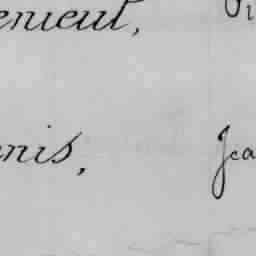 enieul,
nis, Jea